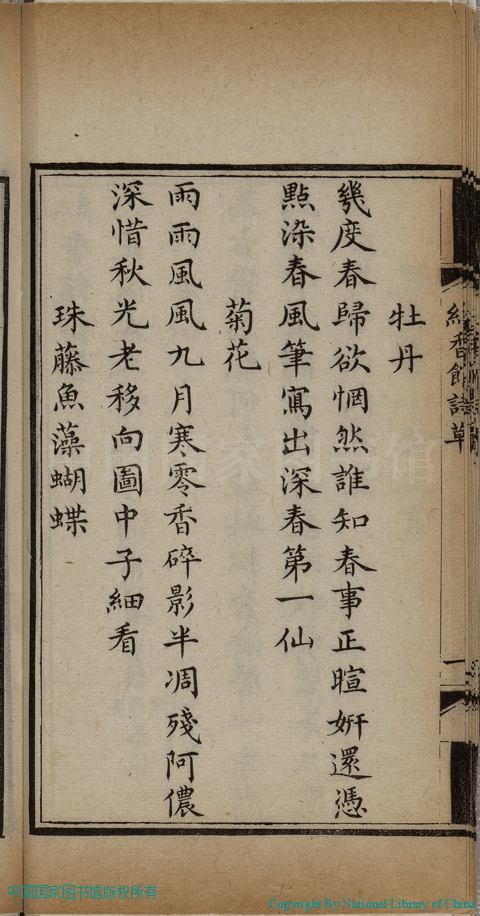 牡丹
幾度春歸欲惘然誰知春事正暄妍還憑
點染春風筆寫出深春第一仙
菊花
雨雨風風九月寒零香碎影半凋殘阿儂
深惜秋光老移向圖中子細看
珠藤魚藻蝴蝶
香館詩草
一
中国国家图书馆版权所有
Copyright By National Library of China